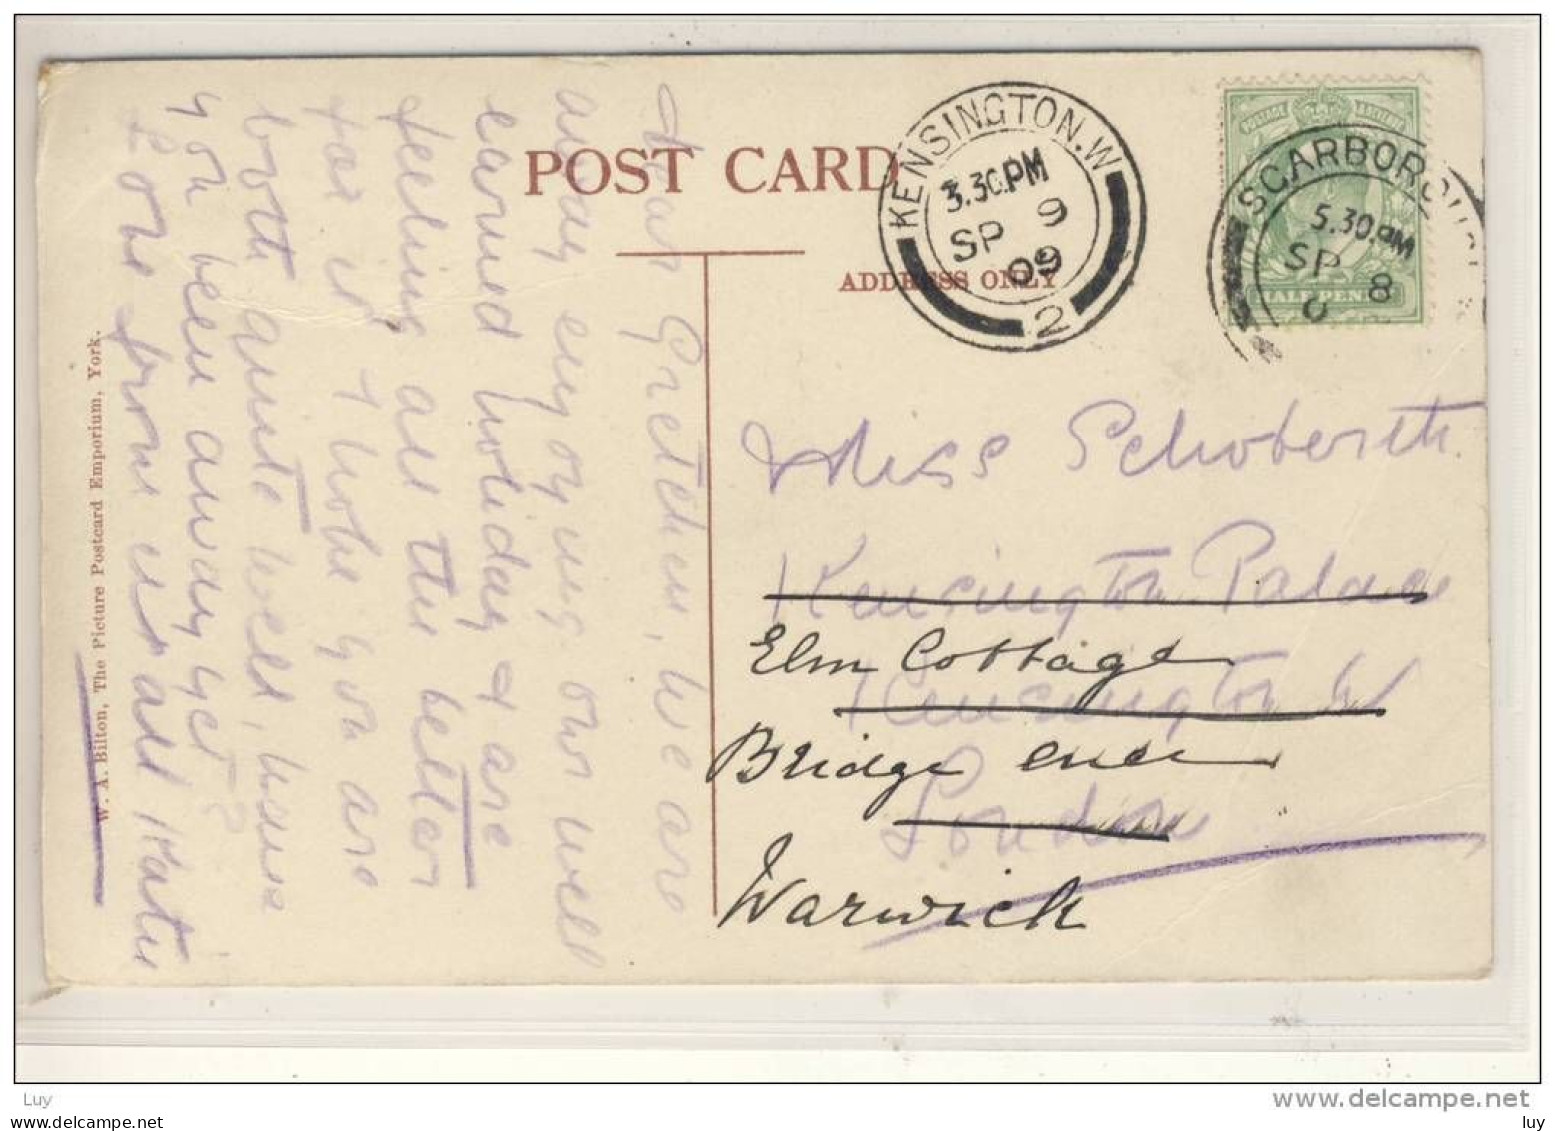 POST CARD
ADDRESS ONLY
KENSINGTON.W
3.30.PM
SP 9
09
2
SCARBOROUGH
5.30.PM
SP 8
0
POSTAGE
HALFPENNY
Dear Gretchen, we are
away enjoying our well
earned holiday & are
feeling all the better
for it I hope you are
both quite well, have
you been away yet?
Love from us all Katie
W. A. Bilton, The Picture Postcard Emporium, York.
Miss Schoberth
Kensington Palace
Elm Cottage
Kensington W
Bridge end
London
Warwick
Luy
www.delcampe.net
luy